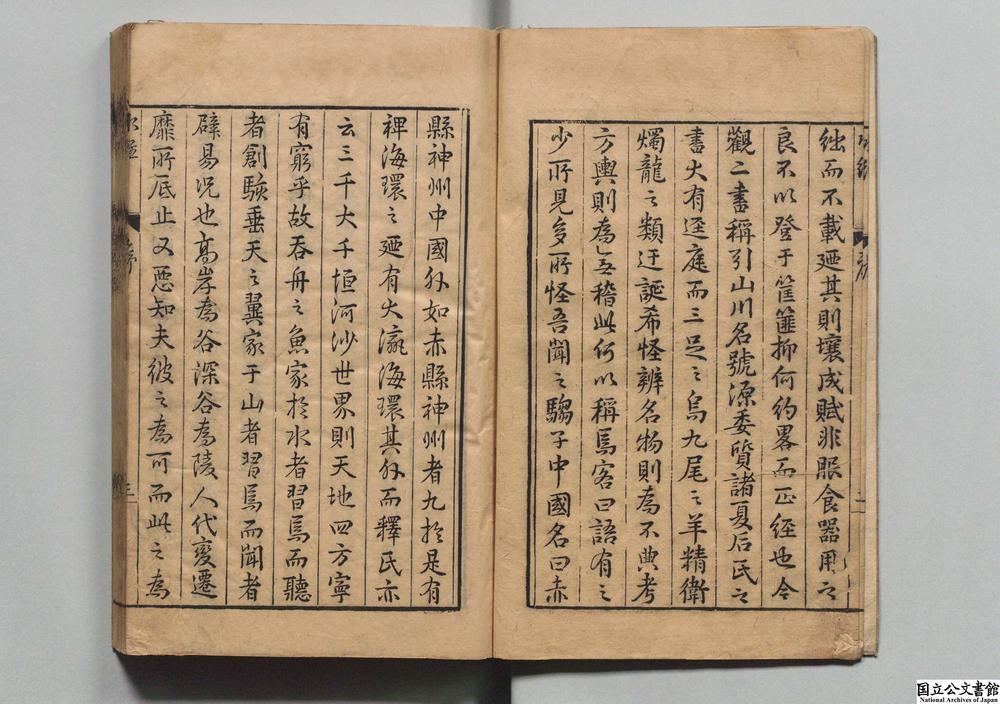 絀而不載廼其則壤成賦非服食器用之
良不以登于筐篚抑何約畧而正經也今
觀二書稱引山川名號源委質諸夏后氏之
書大有逕庭而三足之烏九尾之羊精衛
燭龍之類迂誕希怪辨名物則為不典考
方輿則為乆稽此何以稱焉客曰語有之
少所見多所怪吾聞之騶子中國名曰赤
縣神州中國外如赤縣神州者九於是有
裨海環之廼有大瀛海環其外而釋氏亦
云三千大千恒河沙世界則天地四方寧
有窮乎故吞舟之魚家於水者習焉而聽
者創駭垂天之翼家于山者習焉而聞者
辟易况也高岸為谷深谷為陵人代變遷
靡所底止又惡知夫彼之為可而此之為
水經
序
三
國立公文書館
National Archives of Japan